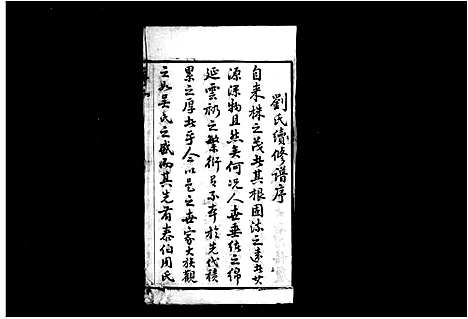 劉氏續修譜序
自来株之茂者其根固流之遠者其
源深物且然矣何况人世垂統之綿
延雲礽之繁衍有不本於先代積
累之厚者乎今以邑之世家大族觀
之如吴氏之盛而其先有泰伯周氏